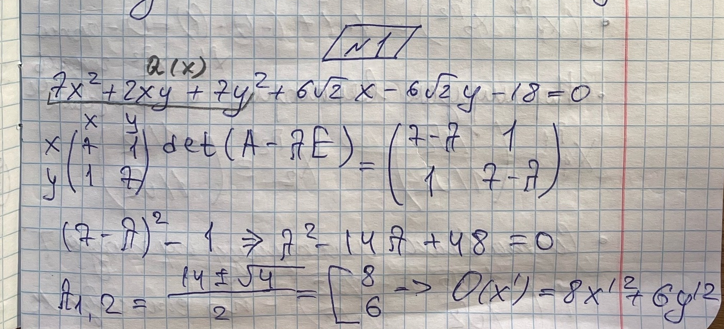 №1
Q(x)
7x² + 2xy + 7y² + 6√2 x - 6√2 y - 18 = 0
x y
x (7 1) det(A - λE) = (7-λ 1)
y (1 7) (1 7-λ)
(7-λ)² - 1 ⇒ λ² - 14λ + 48 = 0
λ1,2 = (14 ± √4)/2 = [8 6 → Q(x') = 8x'² + 6y'²